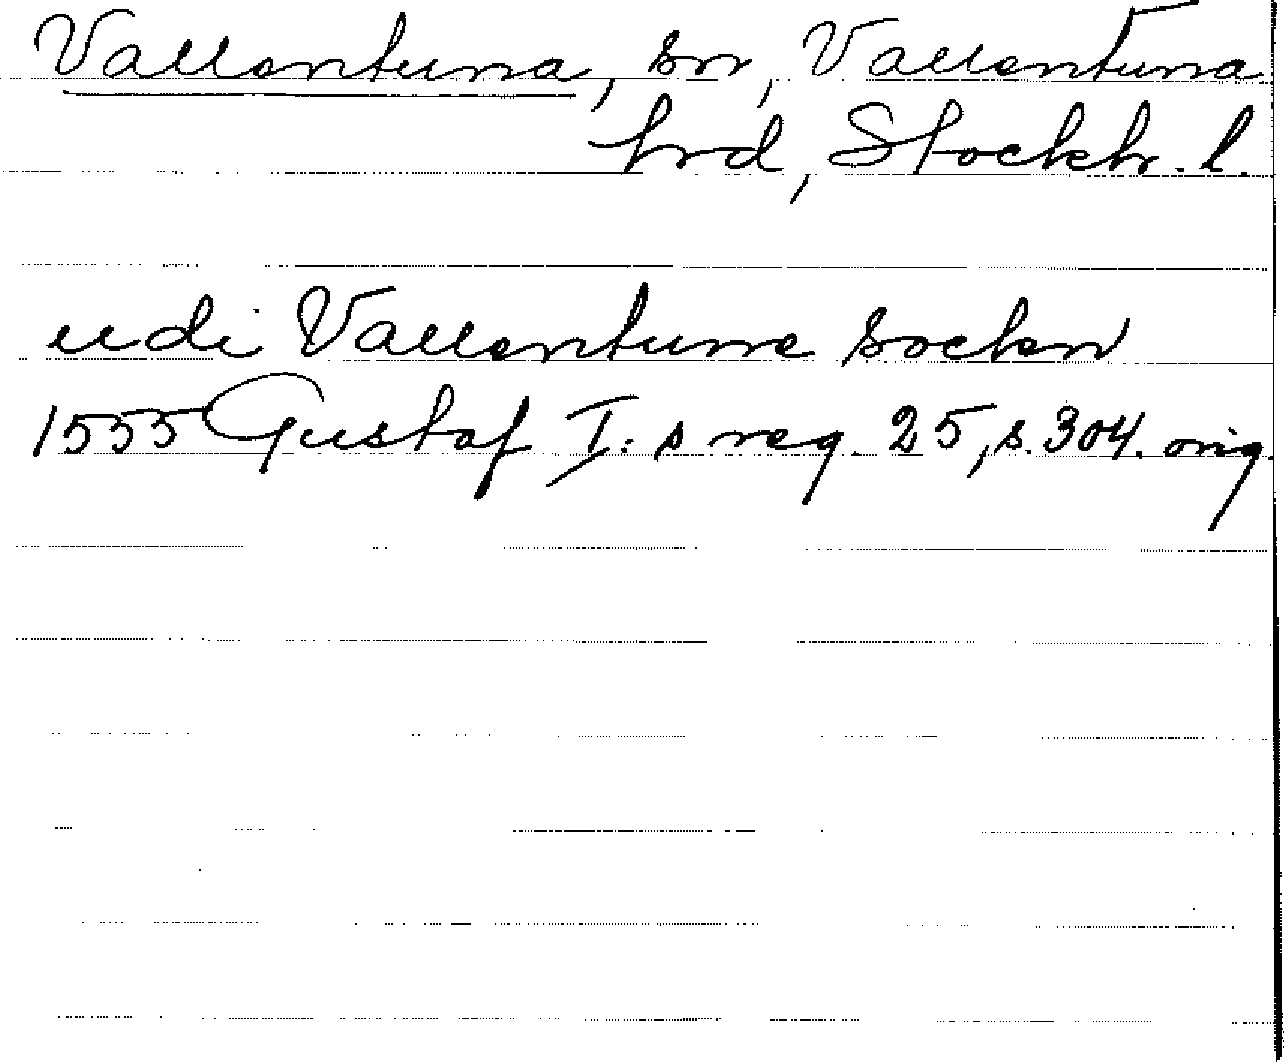 Vallentuna, sn, Vallentuna
hrd, Stockh. l.
udi Vallentune sockn
1555 Gustaf I:s reg. 25, s. 304. orig.